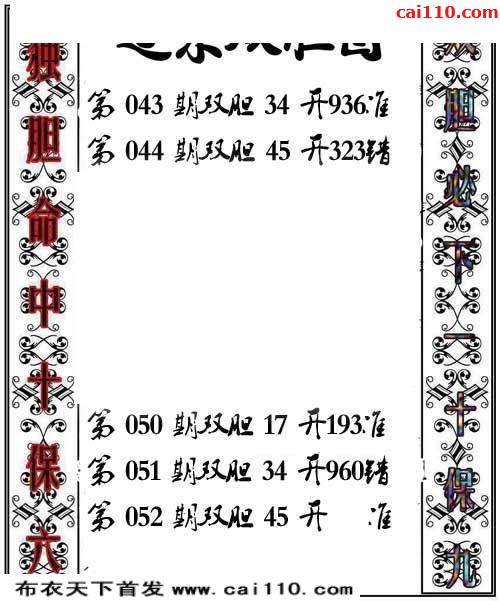 cai110.com
第 043 期双胆 34 开936准
第 044 期双胆 45 开323错
第 050 期双胆 17 开193准
第 051 期双胆 34 开960错
第 052 期双胆 45 开 准
独胆命中十保六
胆必下一十保九
布衣天下首发 www.cai110.com